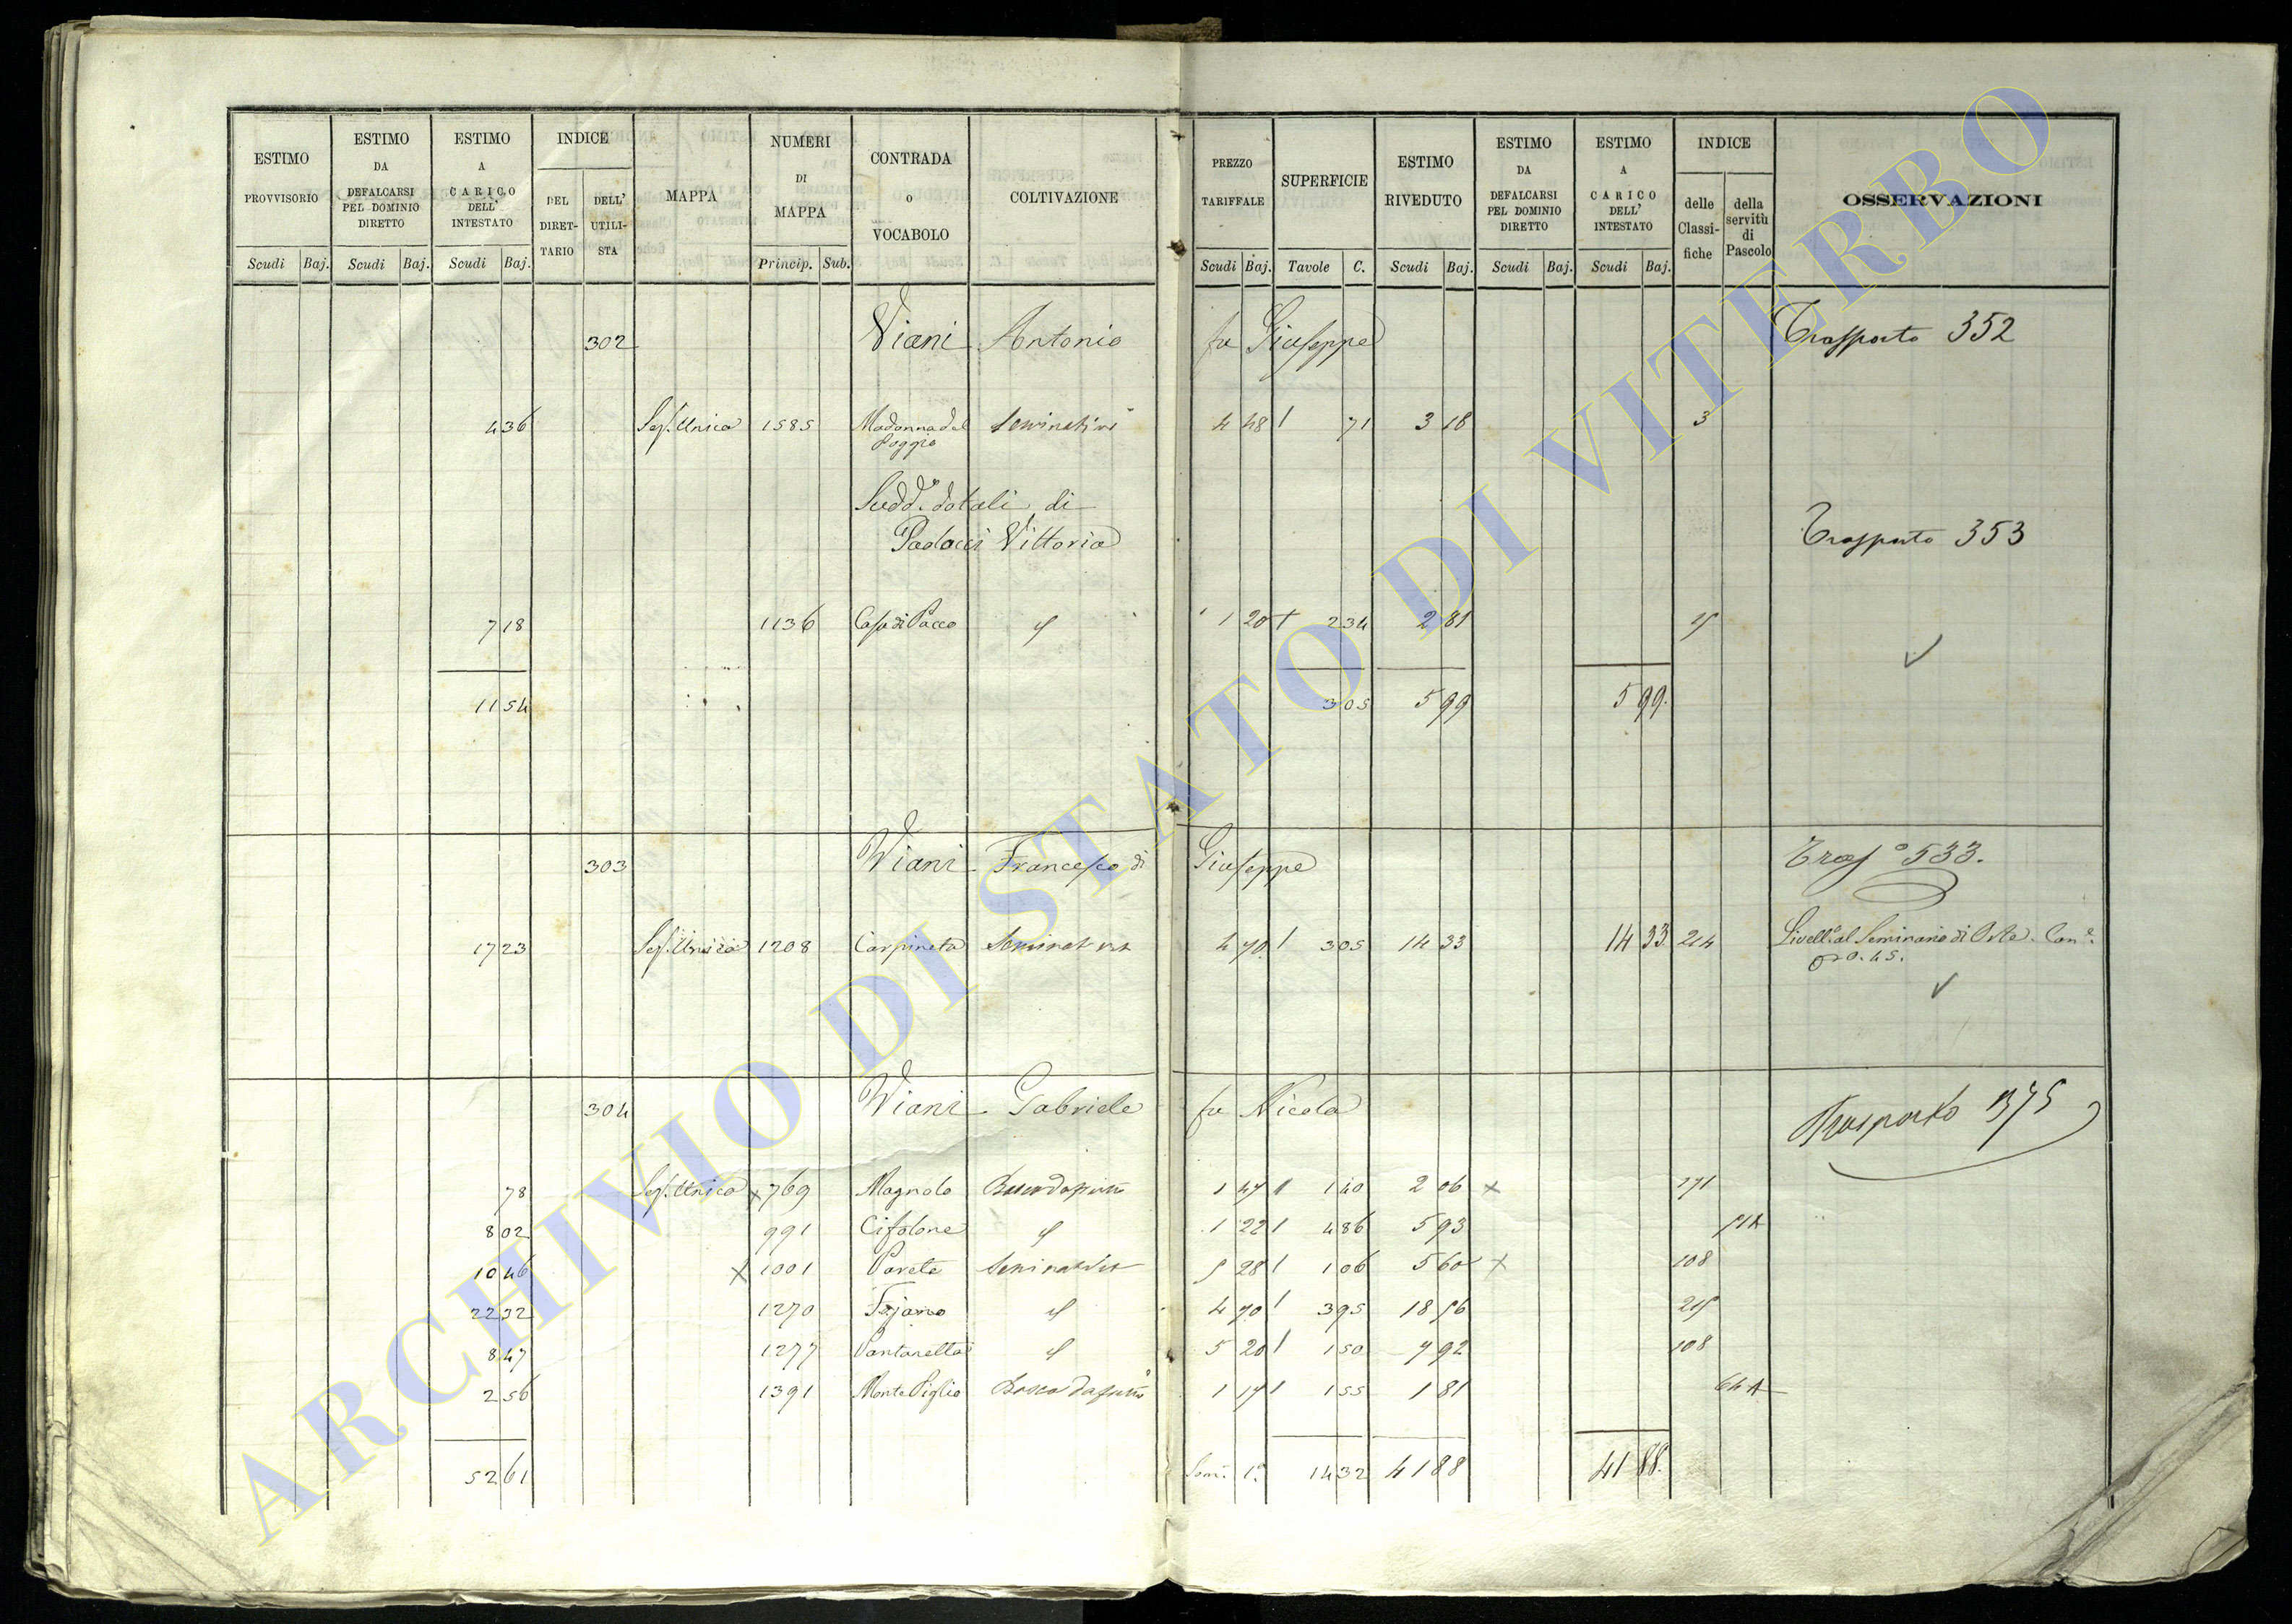 ESTIMO PROVVISORIO
ESTIMO DA DEFALCARSI PEL DOMINIO DIRETTO
ESTIMO A CARICO DELL' INTESTATO
INDICE
DEL DIRET- TARIO
DELL' UTILI- STA
MAPPA
NUMERI DI MAPPA
CONTRADA o VOCABOLO
COLTIVAZIONE
PREZZO TARIFFALE
SUPERFICIE
ESTIMO RIVEDUTO
ESTIMO DA DEFALCARSI PEL DOMINIO DIRETTO
ESTIMO A CARICO DELL' INTESTATO
INDICE
delle Classi- fiche
della servitù di Pascolo
OSSERVAZIONI
Scudi Baj. Scudi Baj. Scudi Baj. Princip. Sub. Scudi Baj. Tavole C. Scudi Baj. Scudi Baj. Scudi Baj.
302 Viani Antonio fu Giuseppe Trasporto 352
4 36 Sez. Unica 1585 Madonna del Poggio Seminativo 4 48 1 71 3 18 3
Sudd.o dotali di
Paolucci Vittoria Trasporto 353
7 18 1136 Casa di Pacco 1 20 234 2 81
11 54 305 5 99 5 99.
303 Viani Francesco di Giuseppe Tras.o 533.
17 23 Sez. Unica 1208 Carpineta Seminat 4 70 1 305 14 33 14 33 214 Livell.o al Seminario di Orte. Can.e
0. 45.
304 Viani Gabriele fu Nicola Trasporto 375
78 Sez. Unica x 769 Magnolo Bosco da frutto 1 47 140 2 06 x 171
8 02 991 Cifolone 1 22 1 486 5 93
10 46 x 1001 Parete Seminativo 5 28 1 106 5 60 x 108
22 32 1270 Fajano 4 70 1 395 18 56 215
8 47 1277 Pantanella 5 20 1 150 7 92 108
2 56 1391 Monte Piglio Bosco da frutto 1 17 1 155 1 81 64 A
52 61 Som. 1432 41 88 41 88.
ARCHIVIO DI STATO DI VITERBO